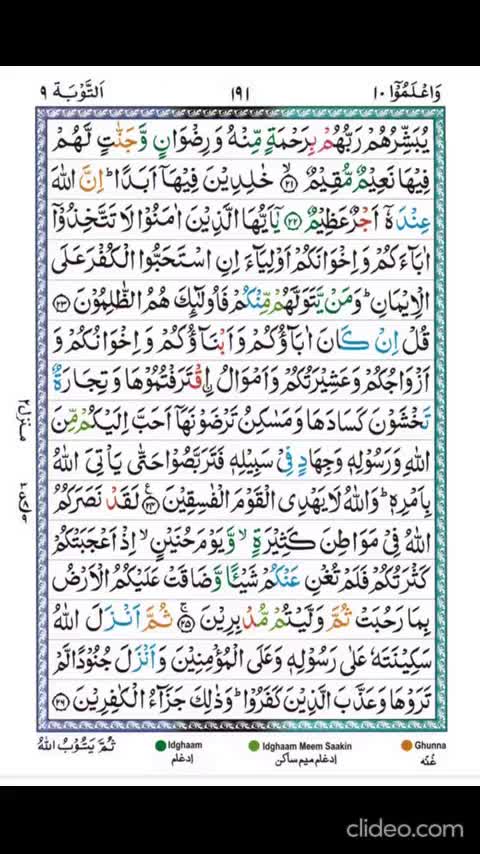 وَاعْلَمُوْٓا ١٠ ١٩١ اَلتَّوْبَة ٩
يُبَشِّرُهُمْ رَبُّهُمْ بِرَحْمَةٍ مِّنْهُ وَرِضْوَانٍ وَّجَنّٰتٍ لَّهُمْ
فِيْهَا نَعِيْمٌ مُّقِيْمٌ ۙ ٢١ خٰلِدِيْنَ فِيْهَآ اَبَدًا ؕ اِنَّ اللّٰهَ
عِنْدَهٗٓ اَجْرٌ عَظِيْمٌ ٢٢ يٰٓاَيُّهَا الَّذِيْنَ اٰمَنُوْا لَا تَتَّخِذُوْٓا
اٰبَآءَكُمْ وَاِخْوَانَكُمْ اَوْلِيَآءَ اِنِ اسْتَحَبُّوا الْكُفْرَ عَلَى
الْاِيْمَانِ ؕ وَمَنْ يَّتَوَلَّهُمْ مِّنْكُمْ فَاُولٰٓئِكَ هُمُ الظّٰلِمُوْنَ ٢٣
قُلْ اِنْ كَانَ اٰبَآؤُكُمْ وَاَبْنَآؤُكُمْ وَاِخْوَانُكُمْ وَ
اَزْوَاجُكُمْ وَعَشِيْرَتُكُمْ وَاَمْوَالُ اِ۟قْتَرَفْتُمُوْهَا وَتِجَارَةٌ
تَخْشَوْنَ كَسَادَهَا وَمَسٰكِنُ تَرْضَوْنَهَآ اَحَبَّ اِلَيْكُمْ مِّنَ
اللّٰهِ وَرَسُوْلِهٖ وَجِهَادٍ فِيْ سَبِيْلِهٖ فَتَرَبَّصُوْا حَتّٰى يَاْتِيَ اللّٰهُ
بِاَمْرِهٖ ؕ وَاللّٰهُ لَا يَهْدِى الْقَوْمَ الْفٰسِقِيْنَ ٢٤ لَقَدْ نَصَرَكُمُ
اللّٰهُ فِيْ مَوَاطِنَ كَثِيْرَةٍ ۙ وَّيَوْمَ حُنَيْنٍ ۙ اِذْ اَعْجَبَتْكُمْ
كَثْرَتُكُمْ فَلَمْ تُغْنِ عَنْكُمْ شَيْـًٔا وَّضَاقَتْ عَلَيْكُمُ الْاَرْضُ
بِمَا رَحُبَتْ ثُمَّ وَلَّيْتُمْ مُّدْبِرِيْنَ ٢٥ ثُمَّ اَنْزَلَ اللّٰهُ
سَكِيْنَتَهٗ عَلٰى رَسُوْلِهٖ وَعَلَى الْمُؤْمِنِيْنَ وَاَنْزَلَ جُنُوْدًا لَّمْ
تَرَوْهَا وَعَذَّبَ الَّذِيْنَ كَفَرُوْا ؕ وَذٰلِكَ جَزَآءُ الْكٰفِرِيْنَ ٢٦
منزل ٢
ثُمَّ يَتُوْبُ اللّٰهُ
Idghaam
إدغام
Idghaam Meem Saakin
إدغام ميم ساكن
Ghunna
غُنّه
clideo.com